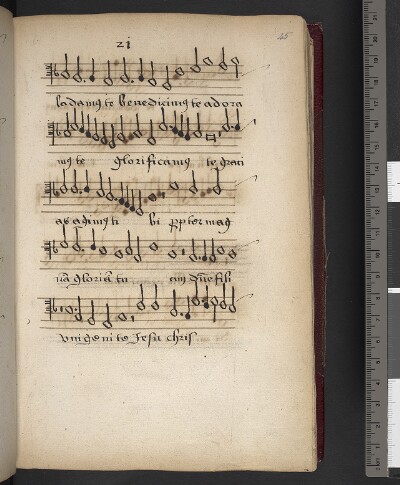 21
45
ladamus te benedicimus te adora
mus te glorificamus te graci
as agimus ti bi ppter mag
nā gloriā tu am dne fili
vnigenite Jesu chris